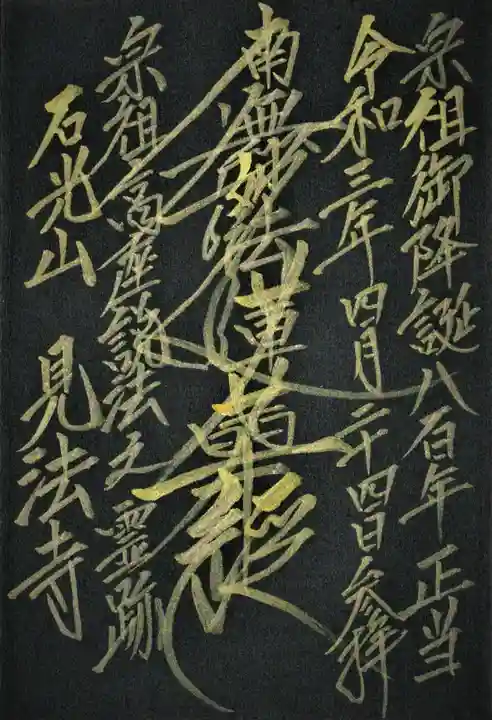 宗祖御降誕八百年 正当
令和三年四月二十四日参拝
南無妙法蓮華経
宗祖高座説法之霊跡
石光山 見法寺